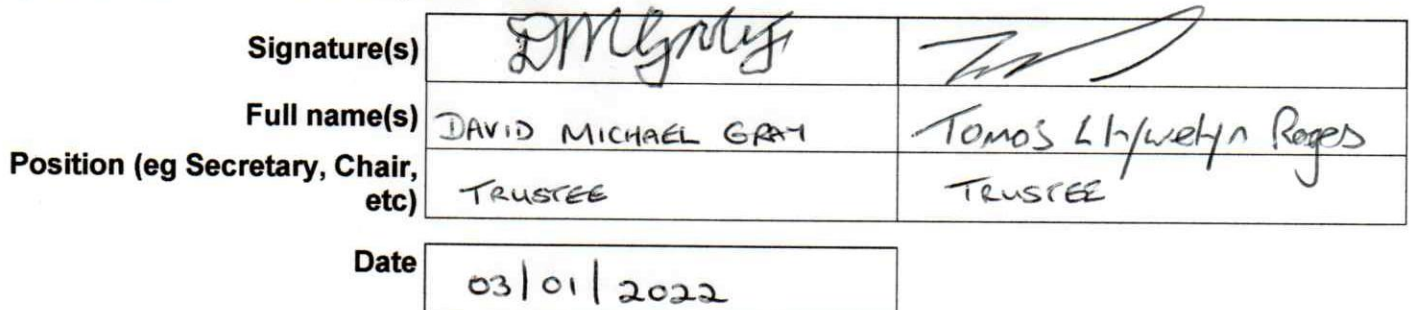 Signature(s) DMGray
Full name(s) DAVID MICHAEL GRAY Tomos Llywelyn
Position (eg Secretary, Chair,
etc) TRUSTEE TRUSTEE
Date 03/01/2022